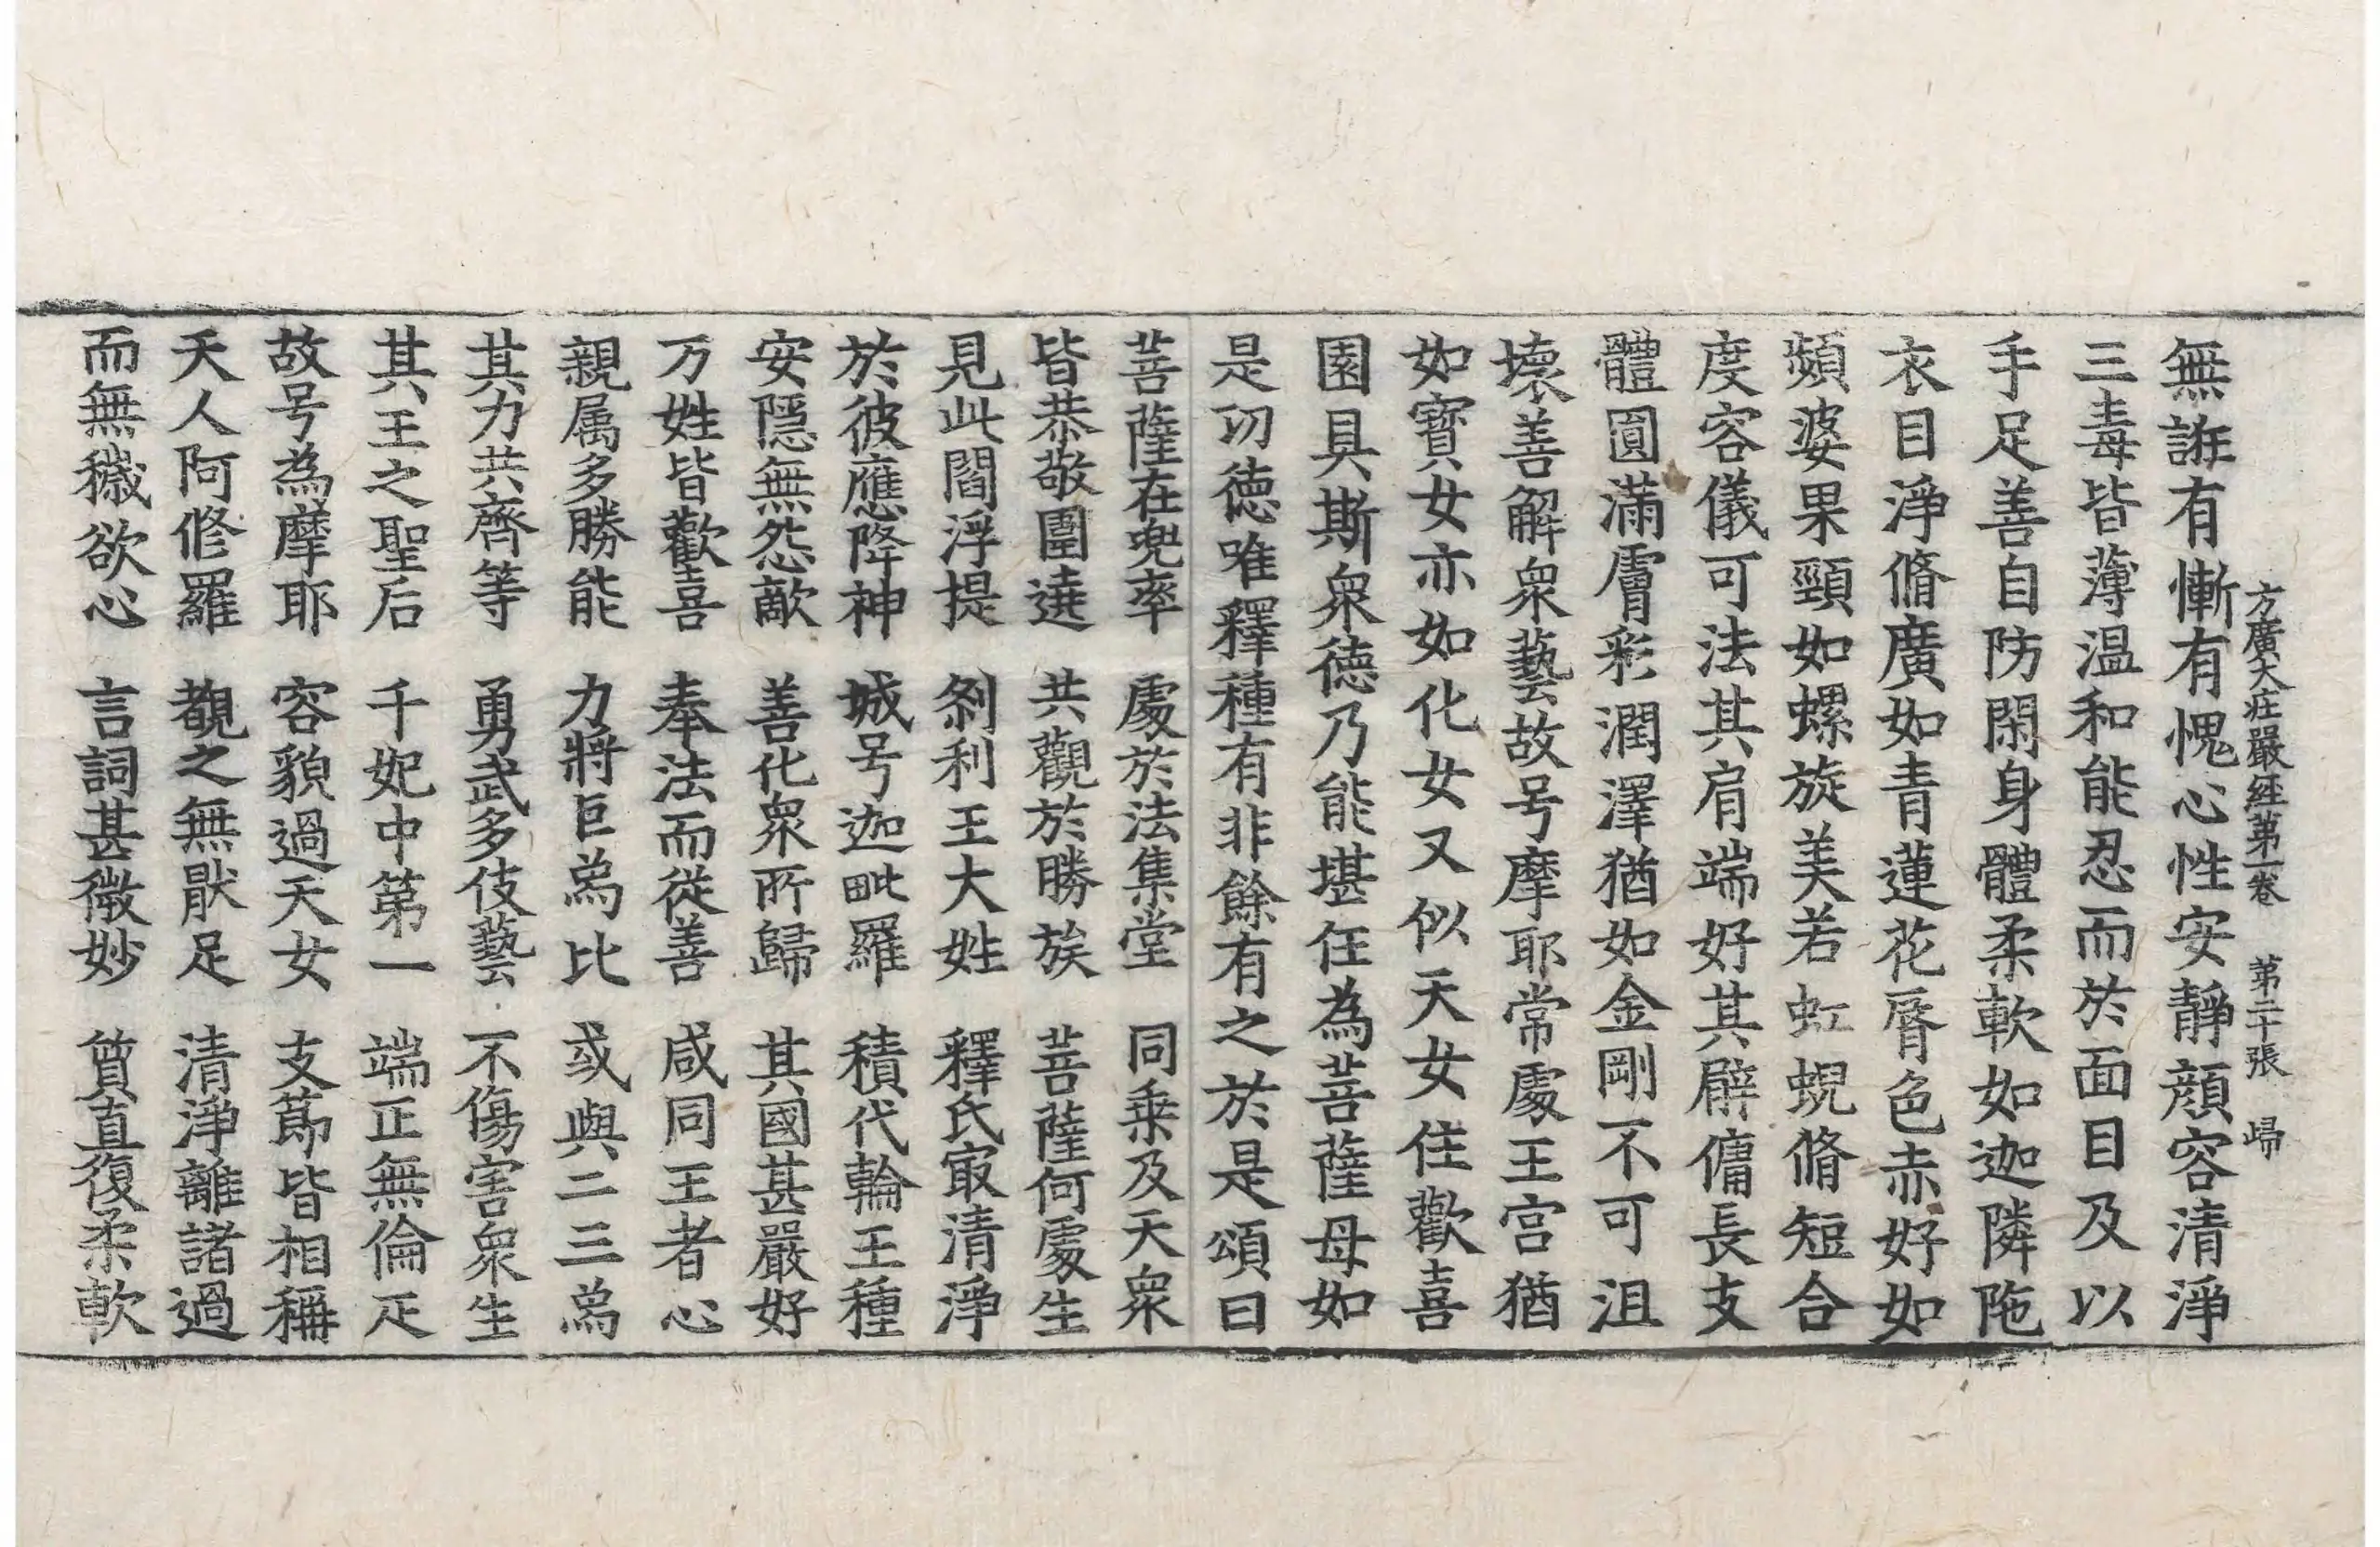 方廣大莊嚴經第一卷 第二十張 㱕
無誑有慚有愧心性安靜顔容清淨
三毒皆薄温和能忍而於面目及以
手足善自防閑身體柔軟如迦隣陁
衣目淨脩廣如青蓮花脣色赤好如
頻婆果頸如螺旋美若虹蜺脩短合
度容儀可法其肩端好其臂傭長支
體圓滿膚彩潤澤猶如金剛不可沮
壞善解衆藝故号摩耶常處王宫猶
如寶女亦如化女又似天女住歡喜
園具斯衆徳乃能堪任為菩薩母如
是功徳唯釋種有非餘有之於是頌曰
菩薩在兜率 處於法集堂 同乗及天衆
皆恭敬圍遶 共觀於勝族 菩薩何處生
見此閻浮提 刹利王大姓 釋氏㝡清淨
於彼應降神 城号迦毗羅 積代輪王種
安隱無怨敵 善化衆所歸 其國甚嚴好
万姓皆歡喜 奉法而從善 咸同王者心
親属多勝能 力將巨爲比 或與二三爲
其力共齊等 勇武多伎藝 不傷害衆生
其王之聖后 千妃中第一 端正無倫疋
故号為摩耶 容貌過天女 支節皆相稱
天人阿修羅 覩之無猒足 清淨離諸過
而無穢欲心 言詞甚微妙 質直復柔軟